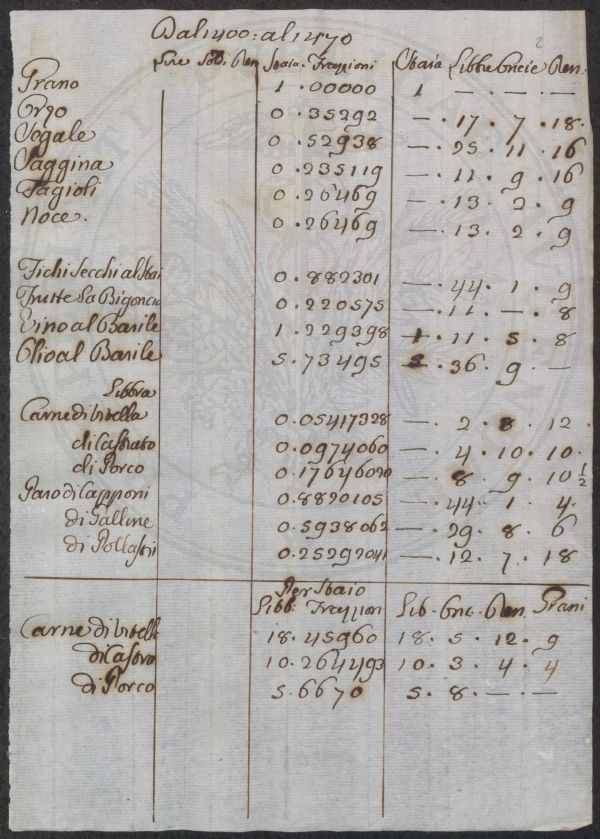 Dal 1400: al 1470
Lire Soldi Den Staia. Frazzioni Staia Libbre Oncie Den.
Grano 1.00000 1 — — —
Orzo 0.35292 — . 17 . 7 . 18.
Segale 0.52938 — . 25 . 11 . 16
Saggina 0.235119 — . 11 . 9 . 16
Fagioli 0.26469 — . 13 . 2 . 9
Noce. 0.26469 — . 13 . 2 . 9
Fichi Secchi al Stai 0.882301 — . 44 . 1 . 9
Frutte La Bigoncia 0.220575 — . 11 . — . 8
Vino al Barile 1.229398 1 . 11 . 5 . 8
Olio al Barile 5.73495 5 . 36 . 9 . —
Libbra
Carne di vitella 0.05417328 — . 2 . 8 . 12 .
di Castrato 0.0974060 — . 4 . 10 . 10.
di Porco 0.17646020 — . 8 . 9 . 10 1/2
Paro di Capponi 0.8820105 — . 44 . 1 . 4.
di Galline 0.5938062 — . 29 . 8 . 6
di Pollastri 0.25292041 — . 12 . 7 . 18
Per Staio
Libb. Frazzioni Lib. Onc. Den. Grani
Carne di vitella 18.45960 18 . 5 . 12 . 9
di Castra 10.264493 10 . 3 . 4 . 4
di Porco 5.6670 5 . 8 . — . —